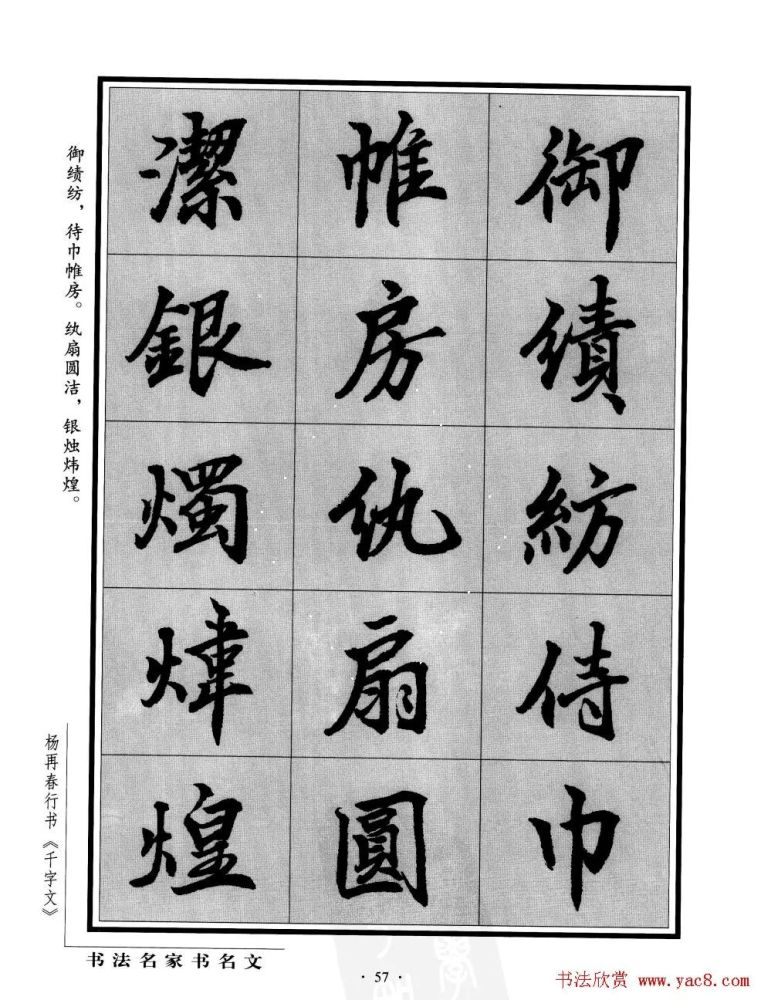 御績紡侍巾
帷房紈扇圓
潔銀燭煒煌
御绩纺，待巾帷房。纨扇圆洁，银烛炜煌。
杨再春行书《千字文》
书法名家书名文
·57·
书法欣赏 www.yac8.com